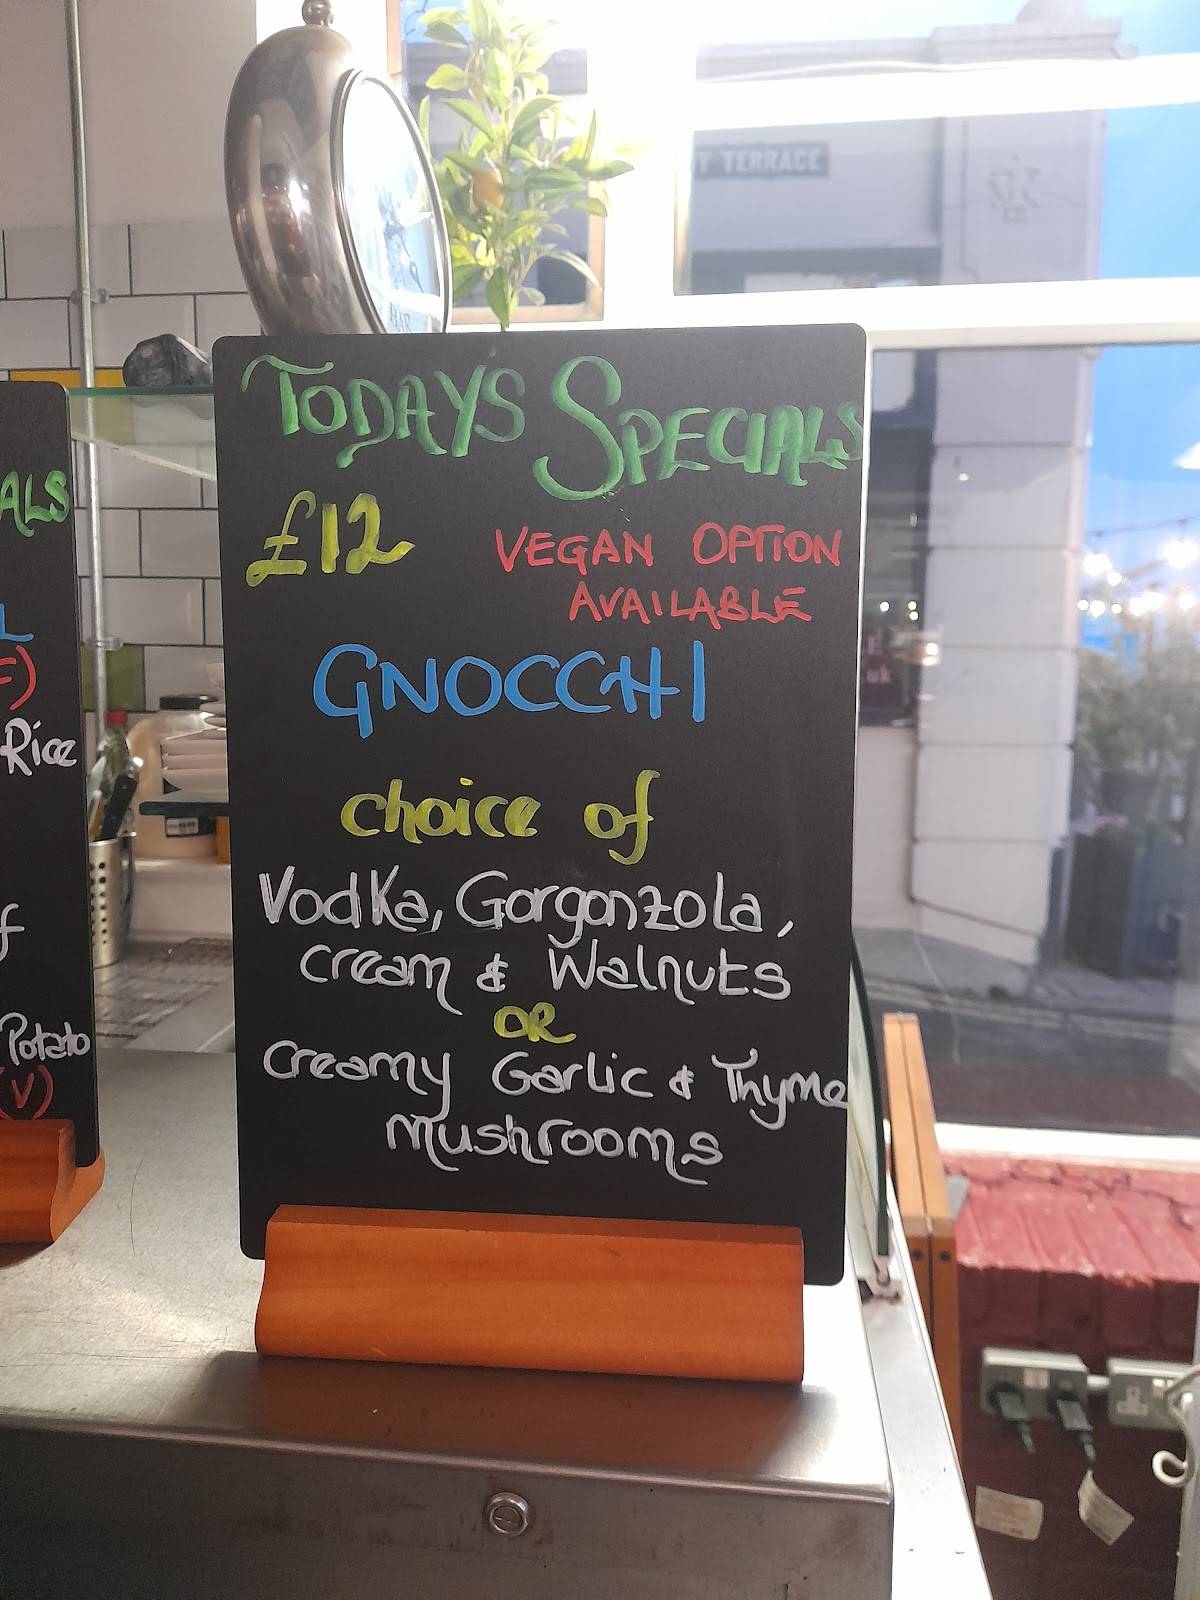 TODAY'S SPECIALS
£12
VEGAN OPTION
AVAILABLE
GNOCCHI
choice of
Vodka, Gorgonzola,
cream & Walnuts
OR
Creamy Garlic & Thyme
Mushrooms
ALS
L
F)
Rice
f
Potato
(V)
T TERRACE
BAR
E
.uk